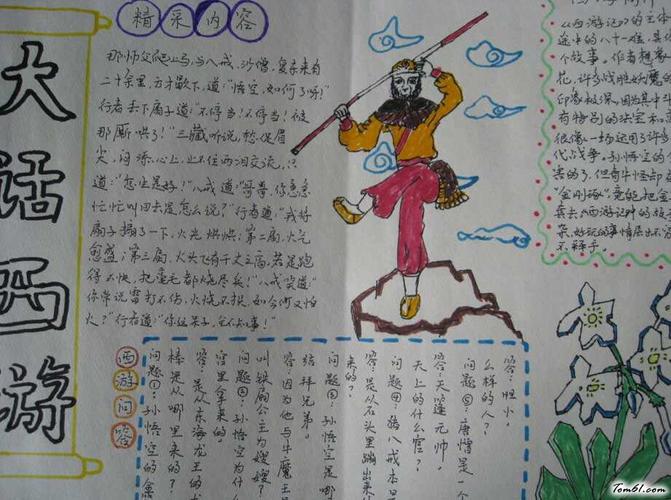 大话西游
精采内容
那师父爬上马,与八戒、沙僧,复东来有
二十余里,方才歇下,道:"悟空,如何了呀!"
行者丢下扇子道:"不停当!不停当!被
那厮哄了!"三藏听说,愁促眉
尖,闷添心上,止不住两泪交流,只
道:"怎生是好!"八戒道:"哥哥,你急急
忙忙叫回去是怎么说?"行者道:"我将
扇子搧了一下,火光烘烘;第二扇,火气
愈盛;第三扇,火头飞有千丈之高。若是跑
得不快,把毫毛都烧尽矣!"八戒笑道:"
你常说雷打不伤,火烧不损,如今何又怕
火?"行者道:"你这呆子,全不知事!
《西游记》的主体
途中的八十一难,具体
个故事。作者想象
印象极深。因为其中
有特别的法宝和
很像一场运用了许多
化战争。孙悟空的
害的了,但青牛怪却
"金刚琢",竟能把金
兵去《西游记》时的
不释手。
西游问答
答:胆小。
么样的人?
问题⑤:唐僧是一个
答:天篷元帅。
天上的什么官?
问题④:猪八戒本是
答:是从石头里蹦出来
来的?
问题③:孙悟空是哪
结拜兄弟。
答:因为他与牛魔王是
叫铁扇公主为嫂嫂?
问题②:孙悟空为什
宫里拿来的。
答:是从东海龙王的
棒是从哪里来的?
问题①:孙悟空的金
Tom61.com